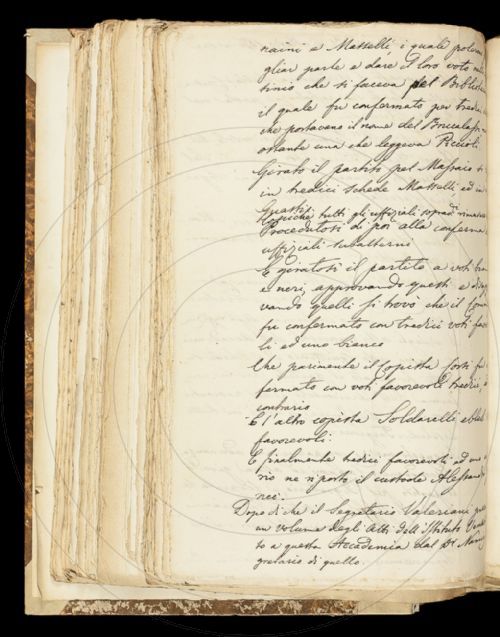 naini e Masselli, i quale potero
gliar parte e dare il loro voto nel
tinio che si faceva pel Bibliote
il quale fu confermato per tredici
che portavano il nome del Brucalassi
ostante una che leggeva Piccioli.
Girato il partito pel Massaio si
in tredici schede Masselli ed in
Guasti
Sicchè tutti gli uffiziali sopradi
Procedutosi di poi alla conferma
uffiziali subalterni
E giratosi il partito a voti
e neri, approvando questi e disap
vando quelli si trovò che il
fu confermato con tredici voti favo
li ed uno bianco
Che parimente il Copista Corsi fu
fermato con voti favorevoli tredici,
contrario
E l'altro copista Soldarelli ebbe
favorevoli.
E finalmente tredici favorevoli ed uno
rio ne riportò il custode Alessand
nei.
Dopo di che il Segretario Valeriani
un volume degli Atti dell'Istituto
to a questa Accademia dal
gretario di quello.